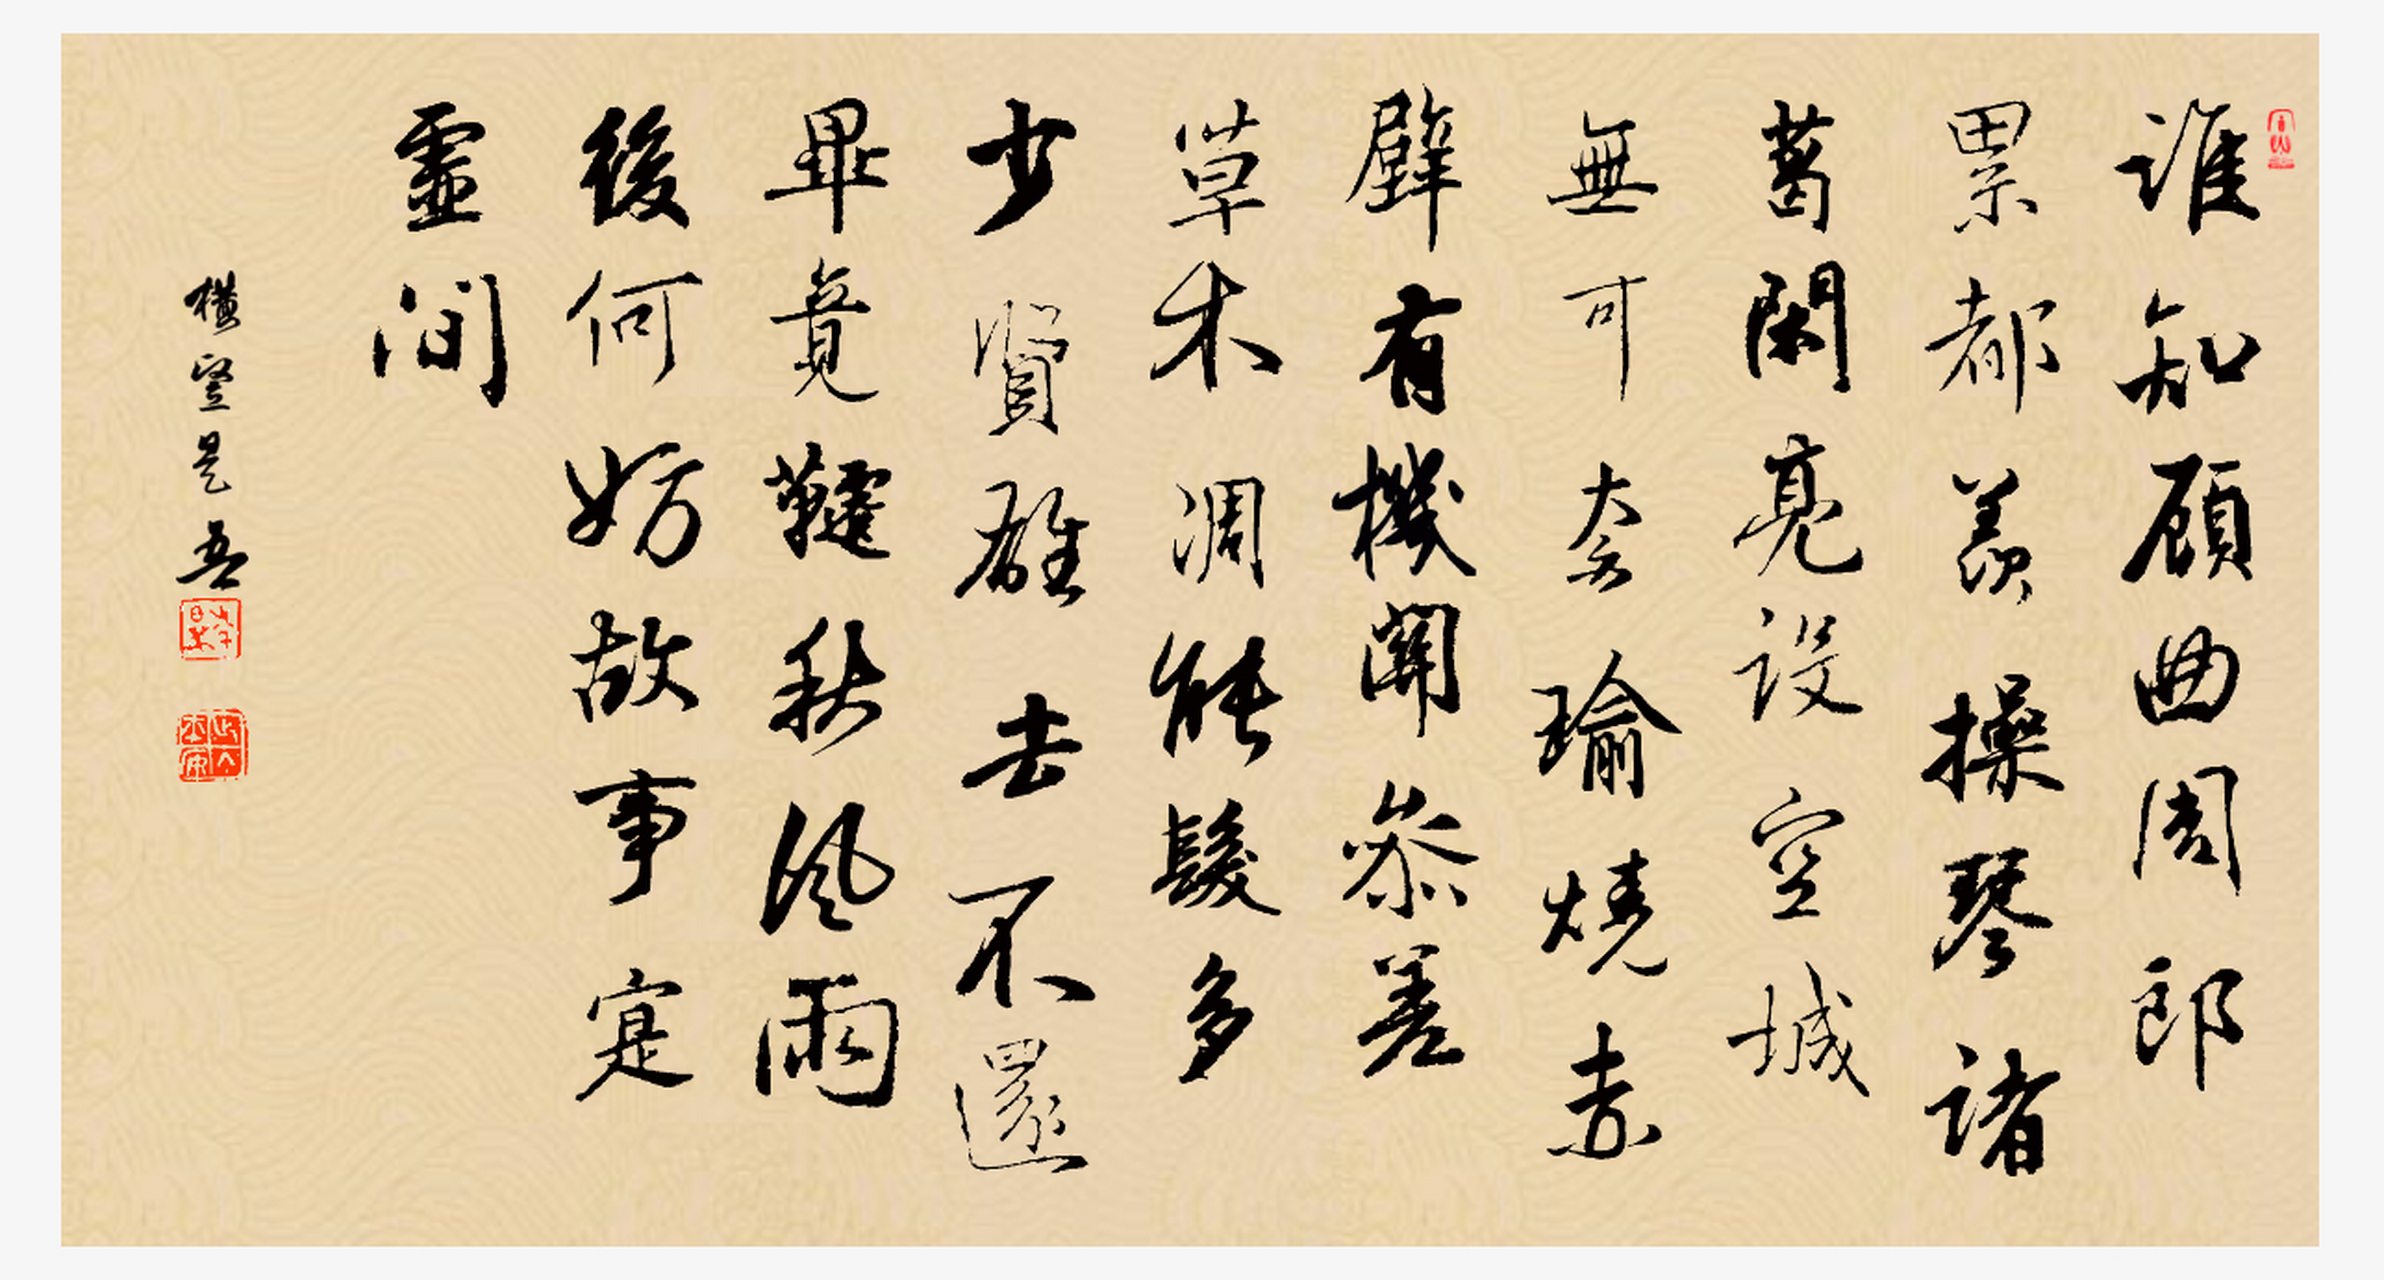 誰知顧曲周郎
累都羨操琴諸
葛閑亮設空城
無可奈瑜燒赤
壁有機關參差
草木凋能髮多
少賢雄去不還
畢竟韆秋風雨
後何妨故事寔
虛間
橫豎是吾